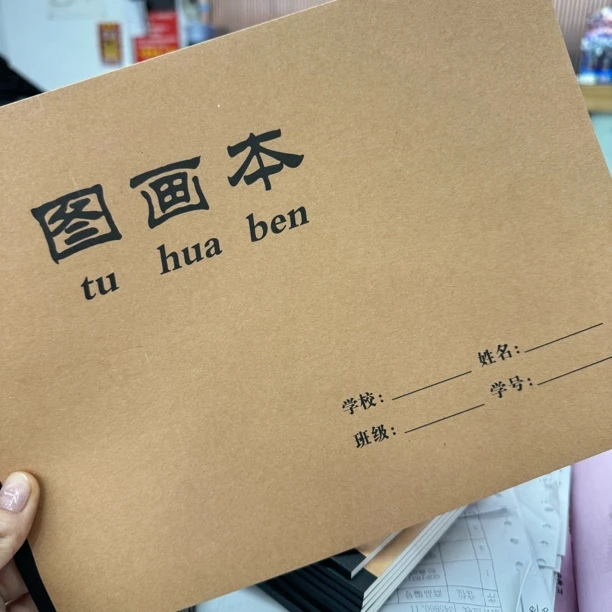 图画本
tu hua ben
学校： 姓名：
班级： 学号：